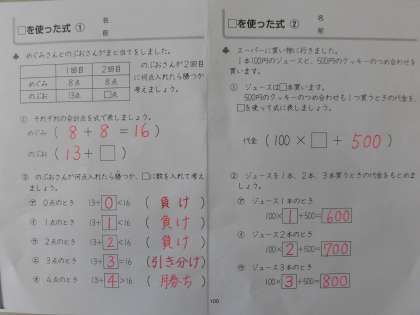 □を使った式 ①
名
前
♠ めぐみさんとのぶおさんがまと当てをしました。
1回目 2回目
めぐみ 8点 8点
のぶお 13点 □点
のぶおさんが2回目に何点入れたら勝つか考えましょう。
① それぞれの合計点を式で表しましょう。
めぐみ ( 8 + 8 = 16 )
のぶお ( 13 + □ )
② のぶおさんが何点入れたら勝つか、□に数を入れて考えましょう。
㋐ 0点のとき 13+0<16 ( 負け )
㋑ 1点のとき 13+1<16 ( 負け )
㋒ 2点のとき 13+2<16 ( 負け )
㋓ 3点のとき 13+3=16 ( 引き分け )
㋔ 4点のとき 13+4>16 ( 勝ち )
□を使った式 ②
名
前
♠ スーパーに買い物に行きました。
1本100円のジュースと、500円のクッキーのつめ合わせを買います。
① ジュースは□本買います。
500円のクッキーのつめ合わせも1つ買うときの代金を、□を使って式に表しましょう。
代金 ( 100 × □ + 500 )
② ジュースを1本、2本、3本買うときの代金をもとめましょう。
㋐ ジュース1本のとき
100×1+500=600
㋑ ジュース2本のとき
100×2+500=700
㋒ ジュース3本のとき
100×3+500=800
100